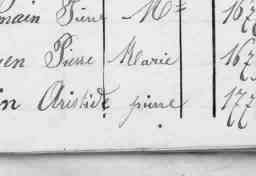 main Pierre M 167
en Pierre Marie 167
in Aristide pierre 177